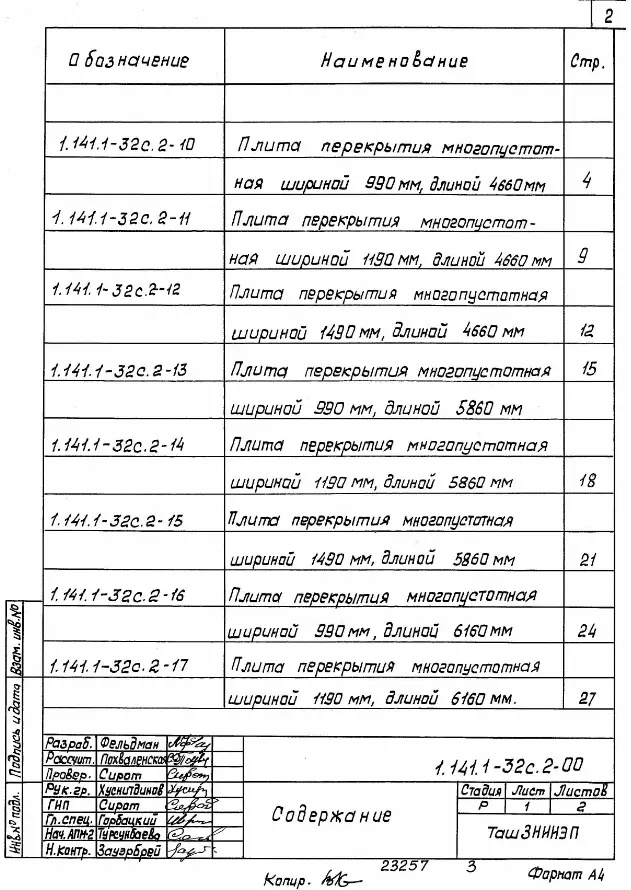 2
Обозначение Наименование Стр.
1.141.1-32с.2-10 Плита перекрытия многопустот-
ная шириной 990 мм, длиной 4660 мм 4
1.141.1-32с.2-11 Плита перекрытия многопустот-
ная шириной 1190 мм, длиной 4660 мм 9
1.141.1-32с.2-12 Плита перекрытия многопустотная
шириной 1490 мм, длиной 4660 мм 12
1.141.1-32с.2-13 Плита перекрытия многопустотная 15
шириной 990 мм, длиной 5860 мм
1.141.1-32с.2-14 Плита перекрытия многопустотная
шириной 1190 мм, длиной 5860 мм 18
1.141.1-32с.2-15 Плита перекрытия многопустотная
шириной 1490 мм, длиной 5860 мм 21
1.141.1-32с.2-16 Плита перекрытия многопустотная
шириной 990 мм, длиной 6160 мм 24
1.141.1-32с.2-17 Плита перекрытия многопустотная
шириной 1190 мм, длиной 6160 мм. 27
Взам. инв.№
Подпись и дата
Инв.№ подл.
Разраб. Фельдман
Рассчит. Похваленская
Провер. Сирот
Рук.гр. Хуснитдинов
ГИП Сирот
Гл.спец. Горбацкий
Нач. АПМ-2 Турсунбаева
Н.контр. Зауэрбрей
1.141.1-32с.2-00
Содержание
Стадия Лист Листов
Р 1 2
ТашЗНИИЭП
Копир. 23257 3 Формат А4